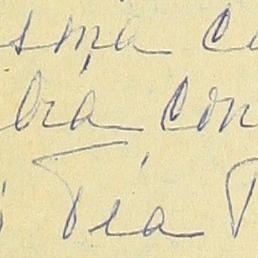 sma c
brá con
Tía